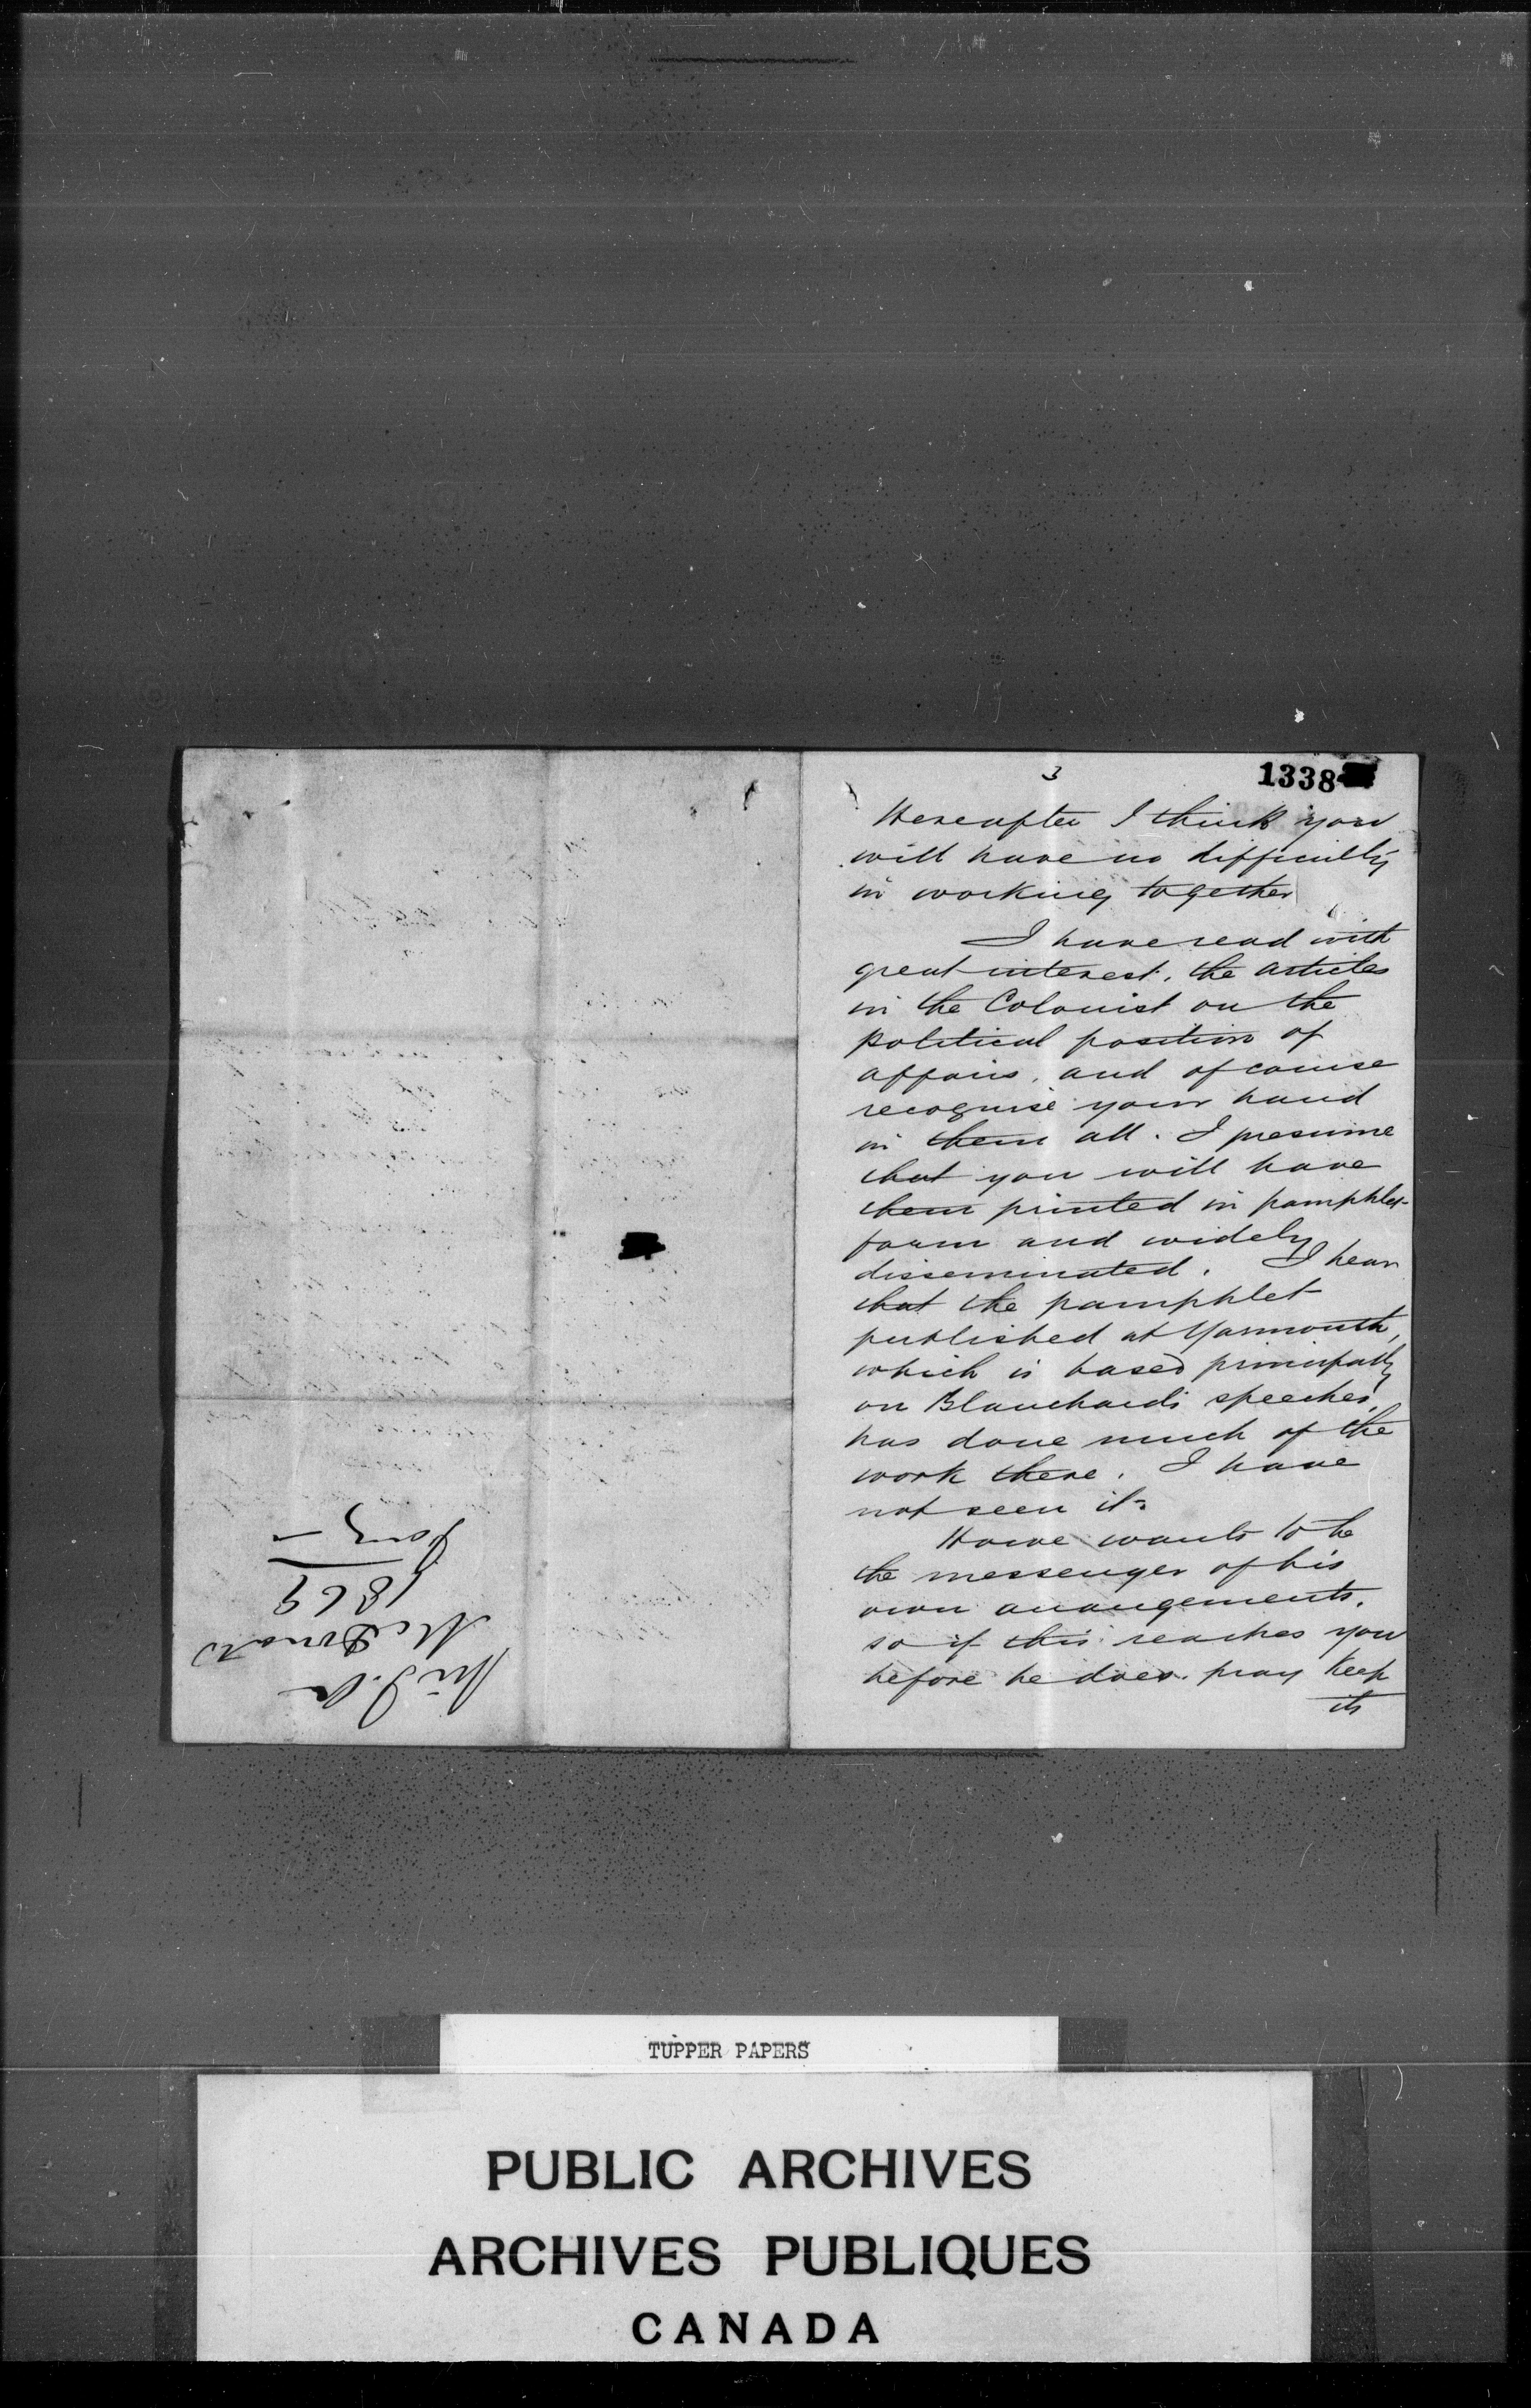 3
1338
Hereafter I think you
will have no difficulty
in working together
I have read with
great interest, the articles
in the Colonist on the
political position of
affairs, and of course
recognise your hand
in them all. I presume
that you will have
them printed in pamphlet
form and widely
disseminated. I hear
that the pamphlet
published at Yarmouth,
which is based principally
on Blanchard's speeches,
has done much of the
work there. I have
not seen it.
Howe wants to be
the messenger of his
own arrangements,
so if this reaches you
before he does. pray keep
its
Sir J. A
McDonald
1869
Jany
TUPPER PAPERS
PUBLIC ARCHIVES
ARCHIVES PUBLIQUES
CANADA